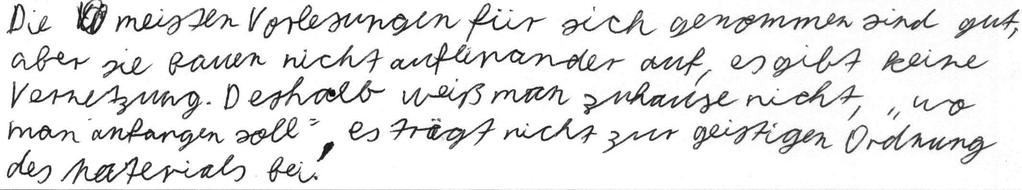 Die meisten Vorlesungen für sich genommen sind gut,
aber sie bauen nicht aufeinander auf, es gibt keine
Vernetzung. Deshalb weiß man zuhause nicht, „wo
man anfangen soll", es trägt nicht zur geistigen Ordnung
des Materials bei!